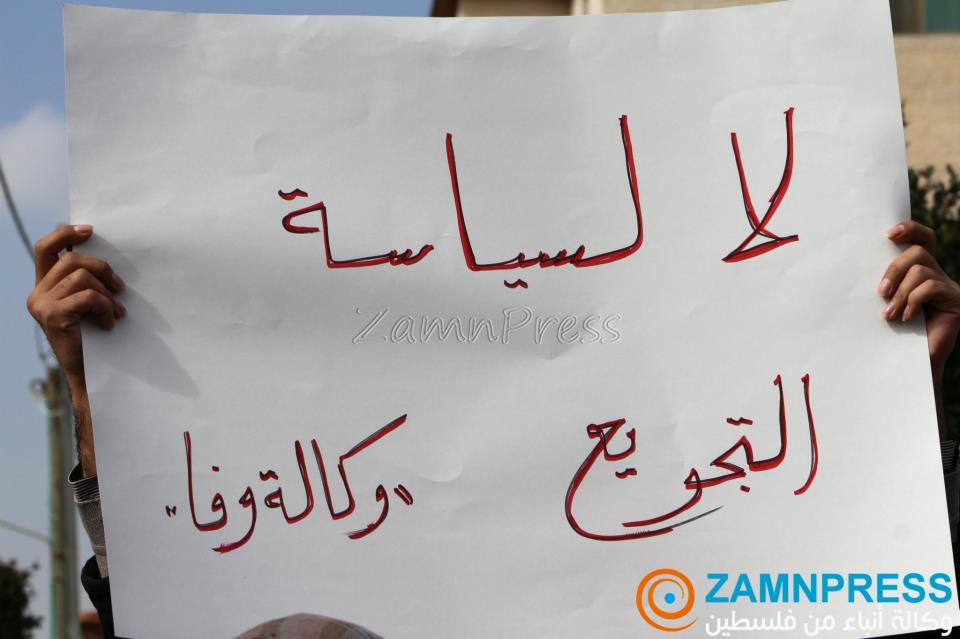 لا لسياسة
ZamnPress
التجويع "وكالة وفا"
ZAMNPRESS
وكالة أنباء من فلسطين